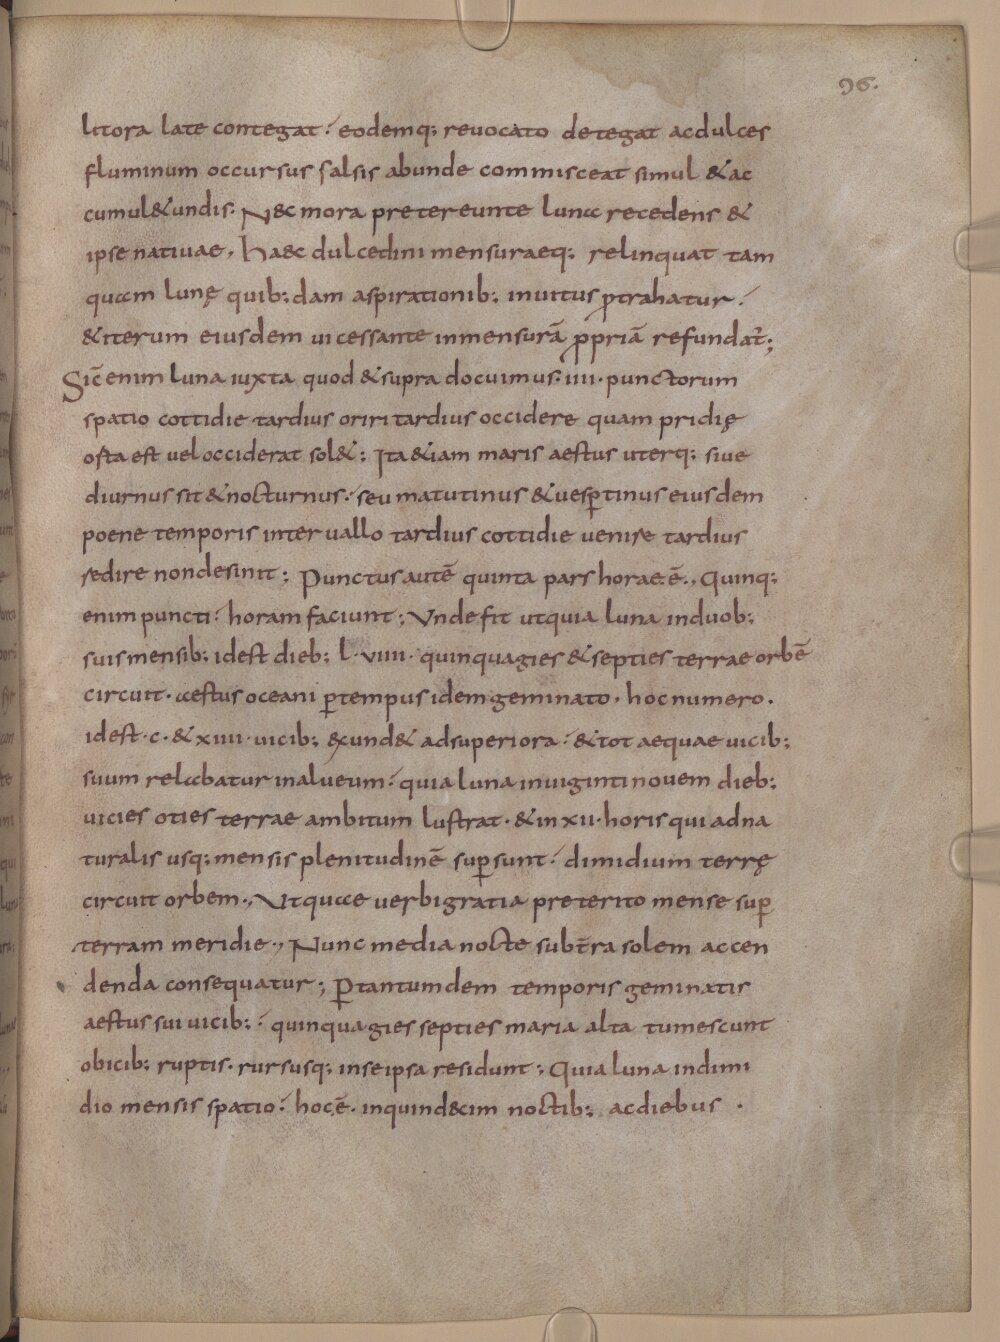 96.
litora late contegat : eodemq; revocato detegat ac dulces
fluminum occursus salsis abunde commisceat simul & ac
cumul& undis. N&c mora pretereunte luna recedens &
ipse nativae, ha&c dulcedini mensuraeq; relinquat tam
quam lunę quib;dam aspirationib; invitus ꝓtrahatur :
& iterum eiusdem vi cessante in mensurā ꝓpriā refundat̄;
Sic̄ enim luna iuxta quod & supra docuimus. iiii. punctorum
spatio cottidie tardius oriri tardius occidere quam pridię
osta est vel occiderat sol&; Ita &iam maris aestus uterq; sive
diurnus sit & nocturnus. seu matutinus & uesꝑtinus eiusdem
poene temporis intervallo tardius cottidie venise tardius
sedire non desinit; Punctus autē quinta pars horae ē., Quinq;
enim puncti : horam faciunt; Unde fit ut quia luna in duob;
suis mensib; id est dieb; l. viiii. quinquagies & septies terrae orbē
circuit. aestus oceani ꝑ tempus idem geminato. hoc numero.
id est. c. & xiiii. vicib; exund& ad superiora : & tot aequae vicib;
suum relabatur in alveum : quia luna in viginti novem dieb;
vicies oties terrae ambitum lustrat. & in xii. horis qui ad na
turalis usq; mensis plenitudinē suꝑsunt : dimidium terrę
circuit orbem., Ut quae verbi gratia preterito mense suꝑ
terram meridie., Nunc media nocte subt̄ra solem accen
denda consequatur; Ꝑ tantumdem temporis geminatis
aestus sui vicib; : quinquagies septies maria alta tumescunt
obicib; ruptis. rursusq; in se ipsa residunt; Quia luna in dimi
dio mensis spatio : hoc ē. in quind&cim noctib; ac diebus .